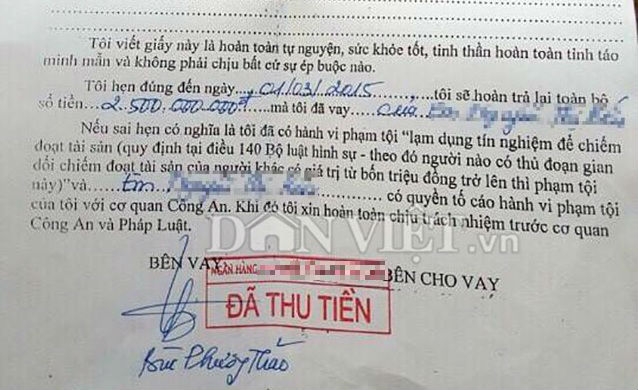 Tôi viết giấy này là hoàn toàn tự nguyện, sức khỏe tốt, tinh thần hoàn toàn tỉnh táo
minh mẫn và không phải chịu bất cứ sự ép buộc nào.
Tôi hẹn đúng đến ngày...01/03/2015...tôi sẽ hoàn trả lại toàn bộ
số tiền...2.500.000.000đ...mà tôi đã vay của Em
Nếu sai hẹn có nghĩa là tôi đã có hành vi phạm tội “lạm dụng tín nghiệm để chiếm
đoạt tài sản (quy định tại điều 140 Bộ luật hình sự - theo đó người nào có thủ đoạn gian
dối chiếm đoạt tài sản của người khác có giá trị từ bốn triệu đồng trở lên thì phạm tội
này)”và.....Em..... có quyền tố cáo hành vi phạm tội
của tôi với cơ quan Công An. Khi đó tôi xin hoàn toàn chịu trách nhiệm trước cơ quan
Công An và Pháp Luật.
DÂN VIỆT.vn
BÊN VAY BÊN CHO VAY
NGÂN HÀNG
ĐÃ THU TIỀN
Bùi Phương Thảo